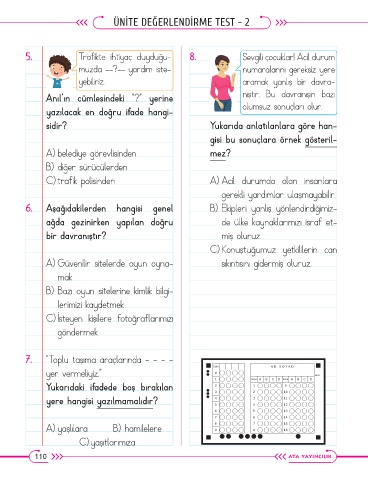 ÜNİTE DEĞERLENDİRME TEST - 2
5. Trafikte ihtiyaç duyduğu-
muzda --?-- yardım iste-
yebiliriz.
Anıl'ın cümlesindeki "?" yerine
yazılacak en doğru ifade hangi-
sidir?
A) belediye görevlisinden
B) diğer sürücülerden
C) trafik polisinden
6. Aşağıdakilerden hangisi genel
ağda gezinirken yapılan doğru
bir davranıştır?
A) Güvenilir sitelerde oyun oyna-
mak
B) Bazı oyun sitelerine kimlik bilgi-
lerimizi kaydetmek
C) İsteyen kişilere fotoğraflarımızı
göndermek
7. "Toplu taşıma araçlarında - - - -
yer vermeliyiz."
Yukarıdaki ifadede boş bırakılan
yere hangisi yazılmamalıdır?
A) yaşlılara B) hamilelere
C) yaşıtlarımıza
8. Sevgili çocuklar! Acil durum
numaralarını gereksiz yere
aramak yanlış bir davra-
nıştır. Bu davranışın bazı
olumsuz sonuçları olur.
Yukarıda anlatılanlara göre han-
gisi bu sonuçlara örnek gösteril-
mez?
A) Acil durumda olan insanlara
gerekli yardımlar ulaşmayabilir.
B) Ekipleri yanlış yönlendirdiğimiz-
de ülke kaynaklarımızı israf et-
miş oluruz.
C) Konuştuğumuz yetkililerin can
sıkıntısını gidermiş oluruz.
AD SOYAD
110
ATA YAYINCILIK